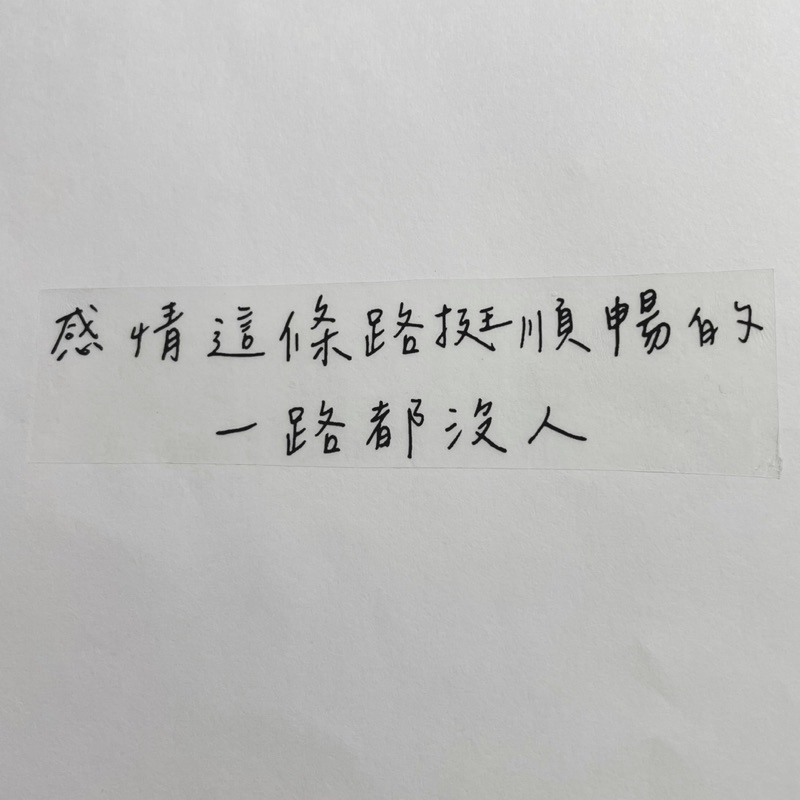 感情這條路挺順暢的
一路都沒人